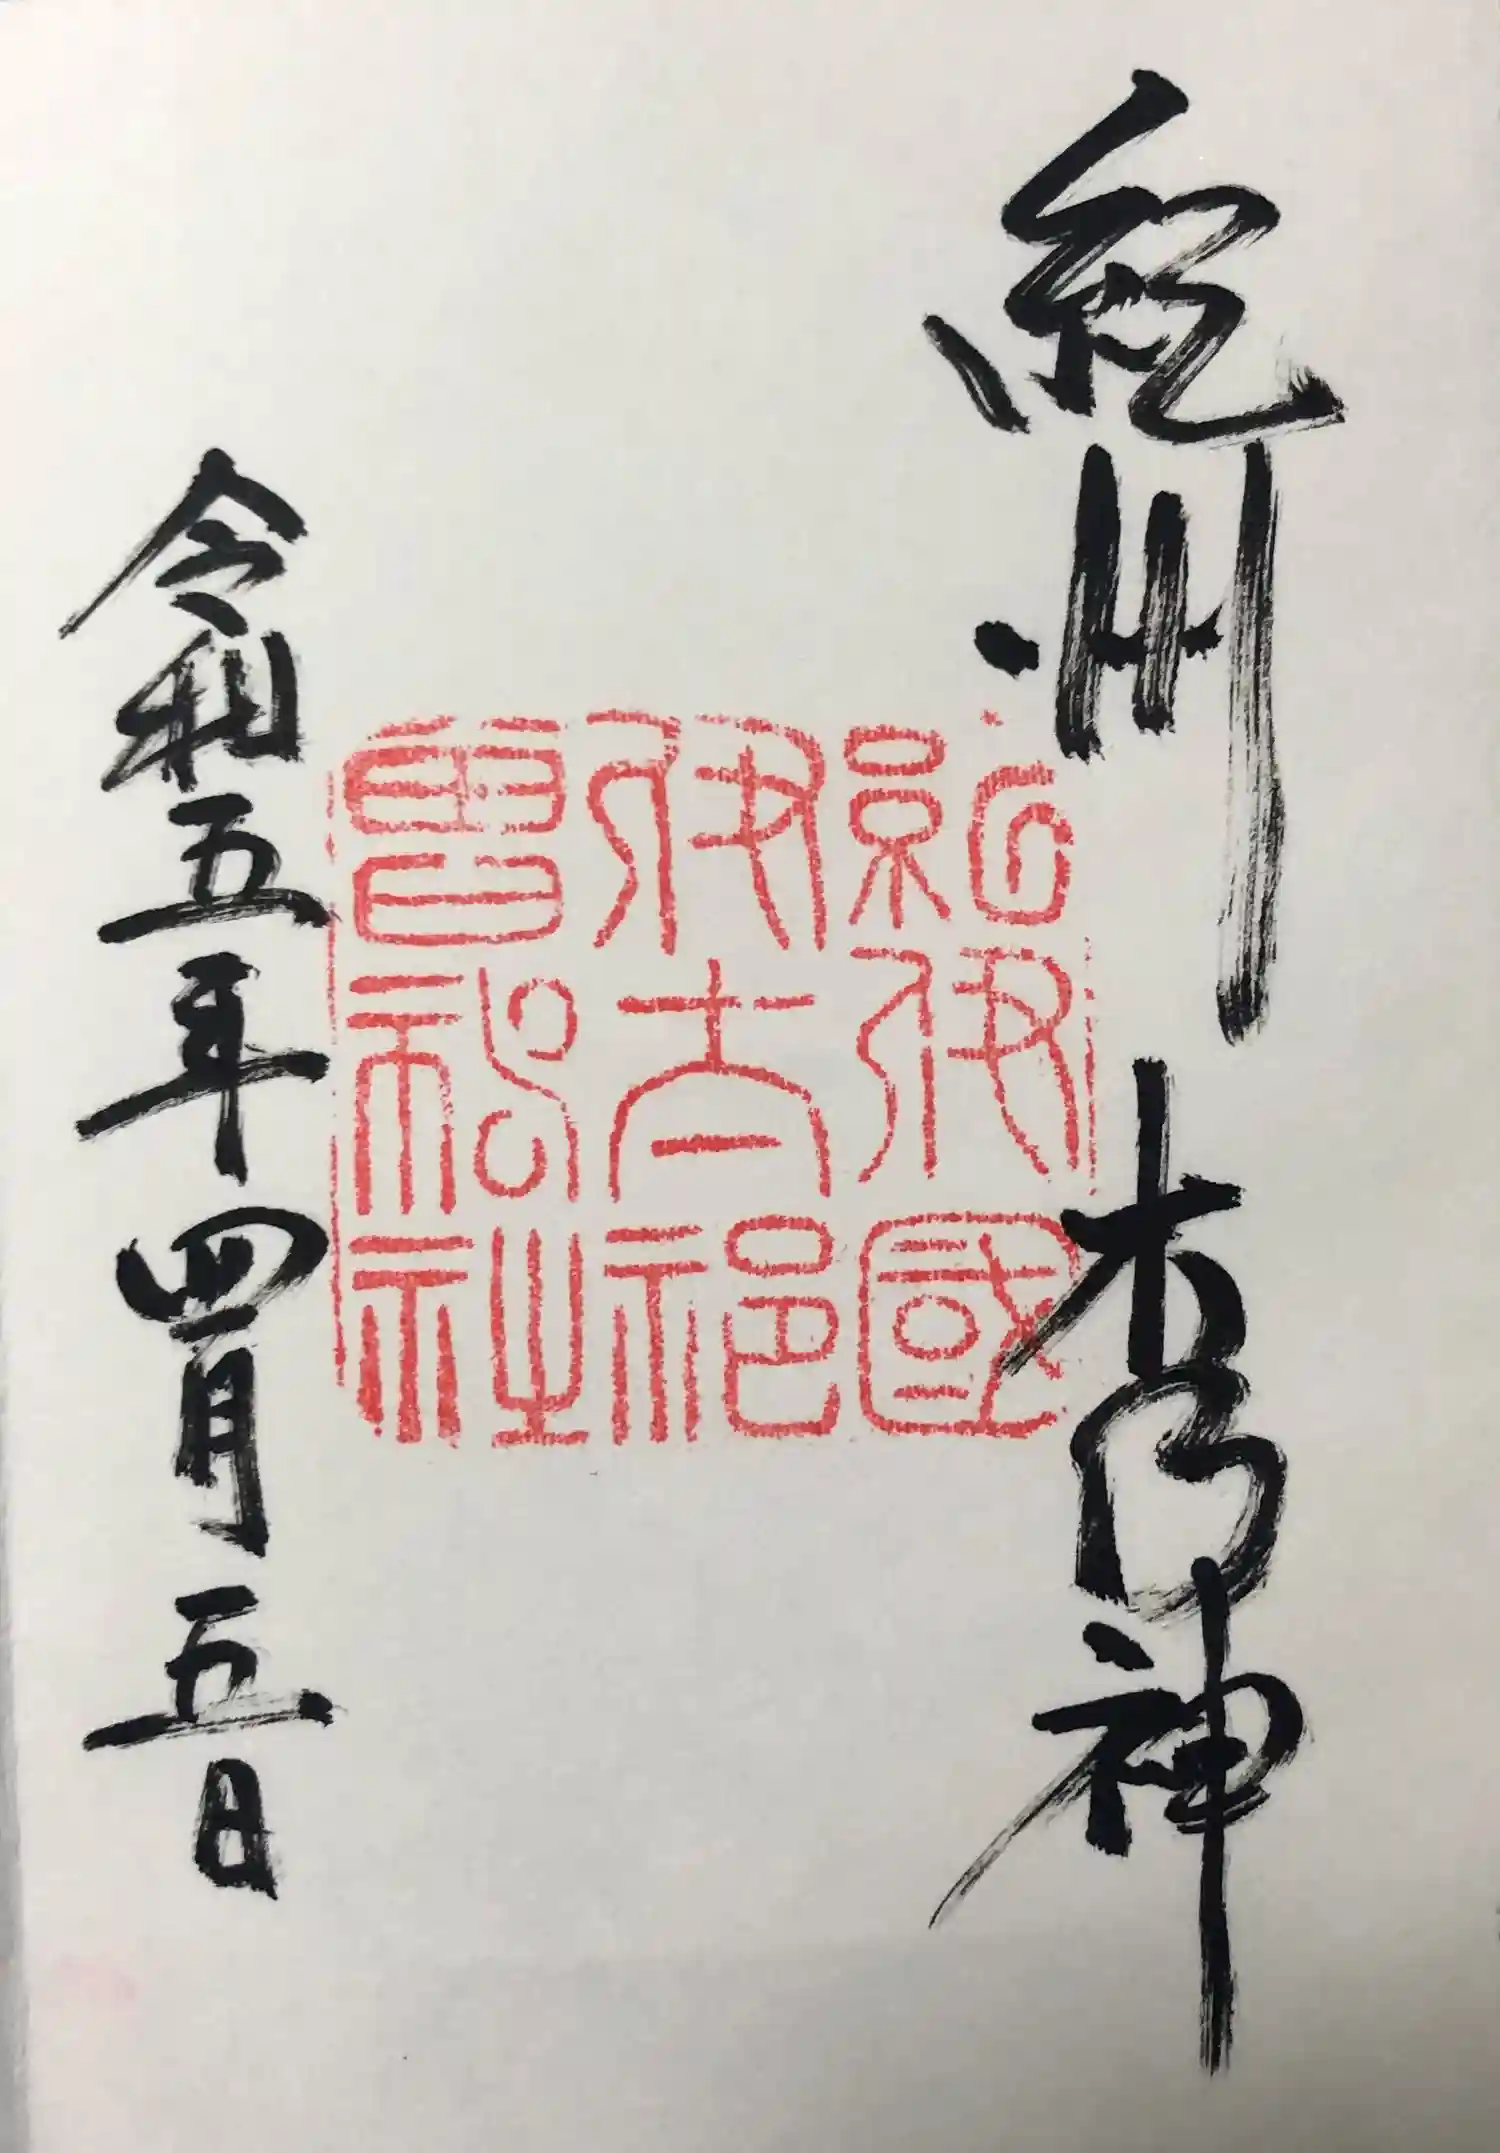 紀州 木乃神
紀伊國
伊太祁
曾神社
令和五年四月五日